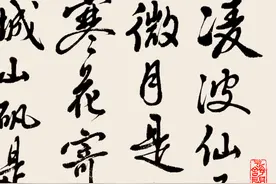 凌波仙子
微月是
寒花寄
城山矾是